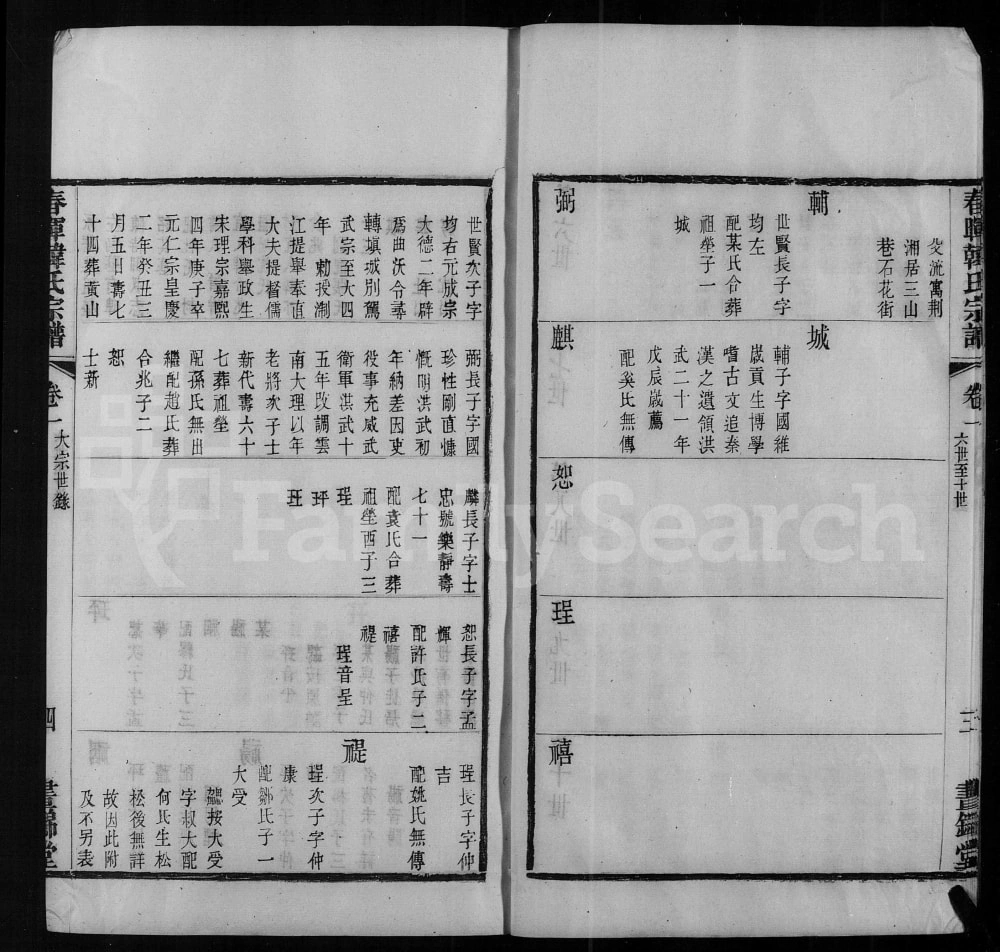 春暉韓氏宗譜
卷一
六世至十世
三
晝錦堂
交流寓荆
湘居三山
巷石花街
輔
世賢長子字
均左
配某氏合葬
祖塋子一
城
弼
城
輔子字國維
歲貢生博學
嗜古文追秦
漢之遺領洪
武二十一年
戊辰歲薦
配奚氏無傳
麒
恕
珵
禧
世賢次子字
均右元成宗
大德二年辟
爲曲沃令尋
轉塡城別駕
武宗至大四
年 勅授淛
江提舉奉直
大夫提督儒
學科舉政生
宋理宗嘉熙
四年庚子卒
元仁宗皇慶
二年癸丑三
月五日壽七
十四葬黃山
弼長子字國
珍性剛直慷
慨明洪武初
年納差因吏
役事充威武
衛軍洪武十
五年改調雲
南大理以年
老將次子士
新代壽六十
七葬祖塋
配孫氏無出
繼配趙氏葬
合兆子二
恕
士新
麟長子字士
忠號樂靜壽
七十一
配袁氏合葬
祖塋西子三
珵
玶
玨
恕長子字孟
輝
配許氏子二
禧
禔
珵音呈
珵長子字仲
吉
配姚氏無傳
禔
珵次子字仲
康
配鄒氏子一
大受
魏按大受
字叔大配
何氏生松
松後無詳
故因此附
及不另表
春暉韓氏宗譜
卷一
大宗世錄
四
晝錦堂
FamilySearch